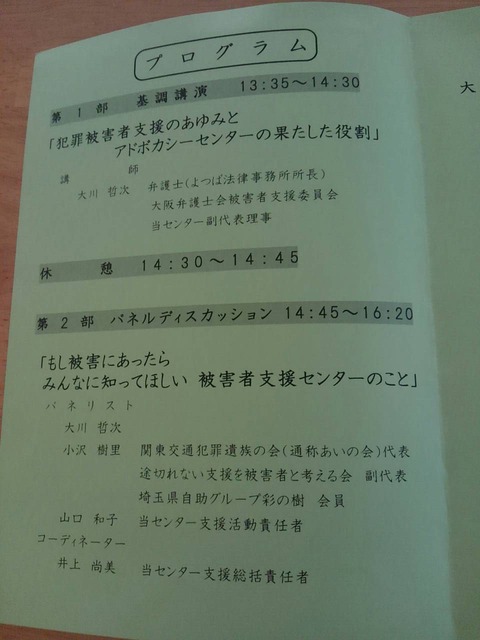 プログラム
第1部 基調講演 13:35～14:30
「犯罪被害者支援のあゆみと
アドボカシーセンターの果たした役割」
講師
大川 哲次 弁護士(よつば法律事務所所長)
大阪弁護士会被害者支援委員会
当センター副代表理事
休憩 14:30～14:45
第2部 パネルディスカッション 14:45～16:20
「もし被害にあったら
みんなに知ってほしい 被害者支援センターのこと」
パネリスト
大川 哲次
小沢 樹里 関東交通犯罪遺族の会(通称あいの会)代表
途切れない支援を被害者と考える会 副代表
埼玉県自助グループ彩の樹 会員
山口 和子 当センター支援活動責任者
コーディネーター
井上 尚美 当センター支援総括責任者
大